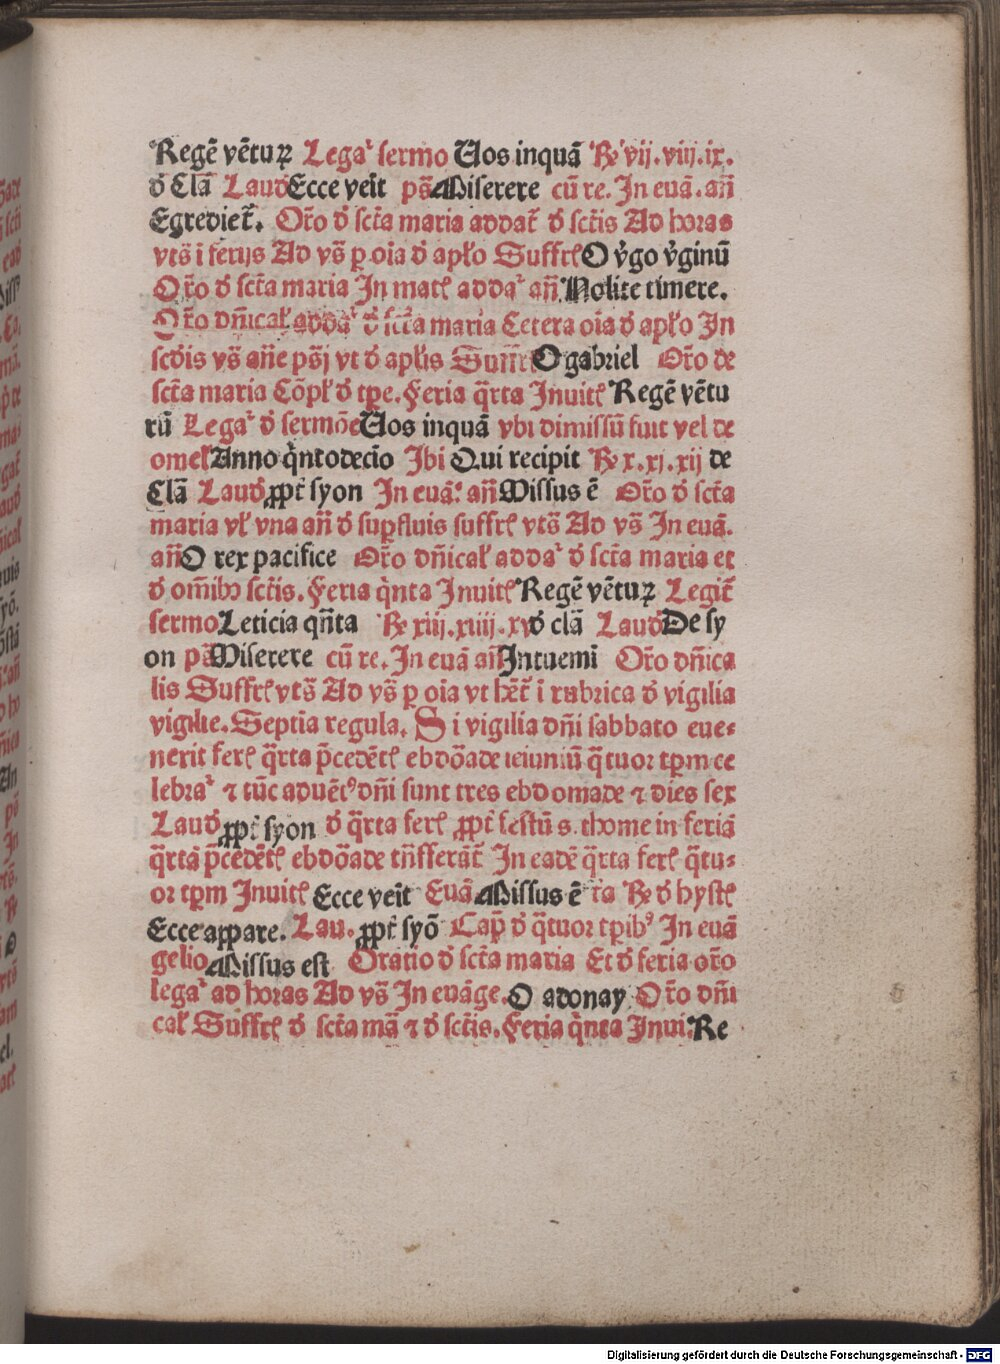 Regē vētuꝝ Legaꝰ sermo Uos inquā ℞ vij.viij.ix.
ꝺ Clā Lauꝺ Ecce veīt ps̄ Miserere cū re. In euā.an̄
Egrediet᷑. Or̄o ꝺ sct̄a maria addat᷑ ꝺ sct̄is Ad horas
vts̄ i ferijs Ad vs̄ p oīa ꝺ apl̄o Suffrꝭ O v̄go v̄ginū
Or̄o ꝺ sct̄a maria In matꝭ addaꝰ an̄ Nolite timere.
Or̄o dn̄icaꝉ addaꝰ ꝺ sct̄a maria Cetera oīa ꝺ apl̄o In
scd̄is vs̄ an̄e ps̄j vt ꝺ apl̄is Suffrꝭ O gabriel Or̄o de
sct̄a maria Cōpꝉ ꝺ tp̄e. Feria q̄rta Inuitꝭ Regē vētu
rū Legaꝰ ꝺ sermōe Uos inquā vbi dimissū fuit vel de
omeꝉ Anno q̇ntodecīo Ibi Qui recipit ℞ x.xj.xij de
Clā Lauꝺ ꝓpt̄ syon In euā. an̄ Missus ē Or̄o ꝺ sct̄a
maria vꝉ vna an̄ ꝺ suꝑfluis suffrꝭ vts̄ Ad vs̄ In euā.
an̄ O rex pacifice Or̄o dn̄icaꝉ addaꝰ ꝺ sct̄a maria et
ꝺ om̄ibꝫ sct̄is. Feria q̇nta Inuitꝭ Regē vētuꝝ Legit᷑
sermo Leticia qn̄ta ℞ xiii.xiiii.xv ꝺ clā Lauꝺ De sy
on ps̄ Miserere cū re. In euā an̄ Intuemī Or̄o dn̄ica
lis Suffrꝭ vts̄ Ad vs̄ p oīa vt hēt᷑ i rubrica ꝺ vigilia
vigilie. Septīa regula. Si vigilia dn̄i sabbato eue⸗
nerit ferꝭ q̄rta p̄cedētꝭ ebdōade ieiuniū q̄tuor tꝑm ce
lebraꝰ ⁊ tūc aduētꝰ dn̄i sunt tres ebdomade ⁊ dies sex
Lauꝺ ꝓpt̄ syon ꝺ q̄rta ferꝭ ꝓpt̄ festū s. thome in feriā
q̄rtā p̄cedētꝭ ebdōade tn̄sferāt᷑ In eadē q̄rta ferꝭ q̄tu⸗
or tꝑm Inuitꝭ Ecce veīt Euā Missus ē ta ℞ ꝺ hystꝭ
Ecce appare. Lau. ꝓpt̄ syō Cap̄ ꝺ q̄tuor tꝑibꝰ In euā
gelio Missus est Oratio ꝺ sct̄a maria Et ꝺ feria or̄o
legaꝰ ad horas Ad vs̄ In euāge. O adonay Or̄o dn̄i
caꝉ Suffrꝭ ꝺ sct̄a mā ⁊ ꝺ sct̄is. Feria q̇nta Inui. Re
Digitalisierung gefördert durch die Deutsche Forschungsgemeinschaft - DFG